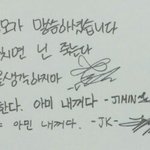 모가 말씀하셨습니다
치면 넌 죽는다
을 생각하지마
한다. 아미 내꺼다 -JIMIN
아민 내꺼다. -JK-